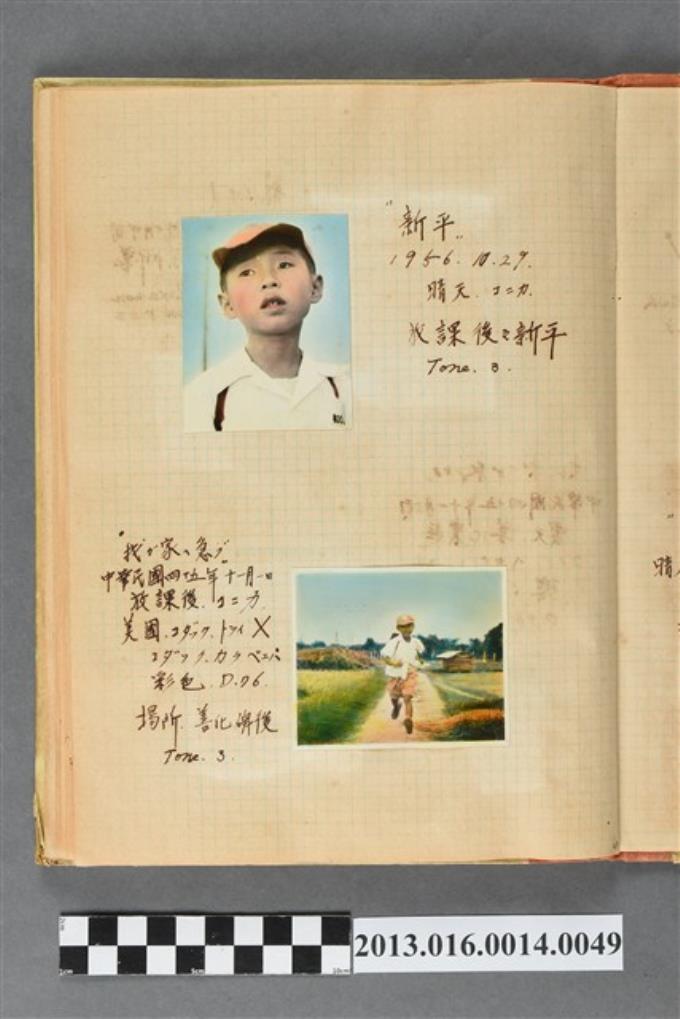 "新平"
1956. 10. 29.
晴天. コニカ.
放課後ミ新平
Tone. 3.
"我が家へ急グ"
中華民國四十五年十一月一日
放課後. コニカ.
美國. コダック. トライ X
コダック. カラ
彩色. D.76.
場所. 善化
Tone. 3.
晴
1cm
5cm
10cm
2013.016.0014.0049